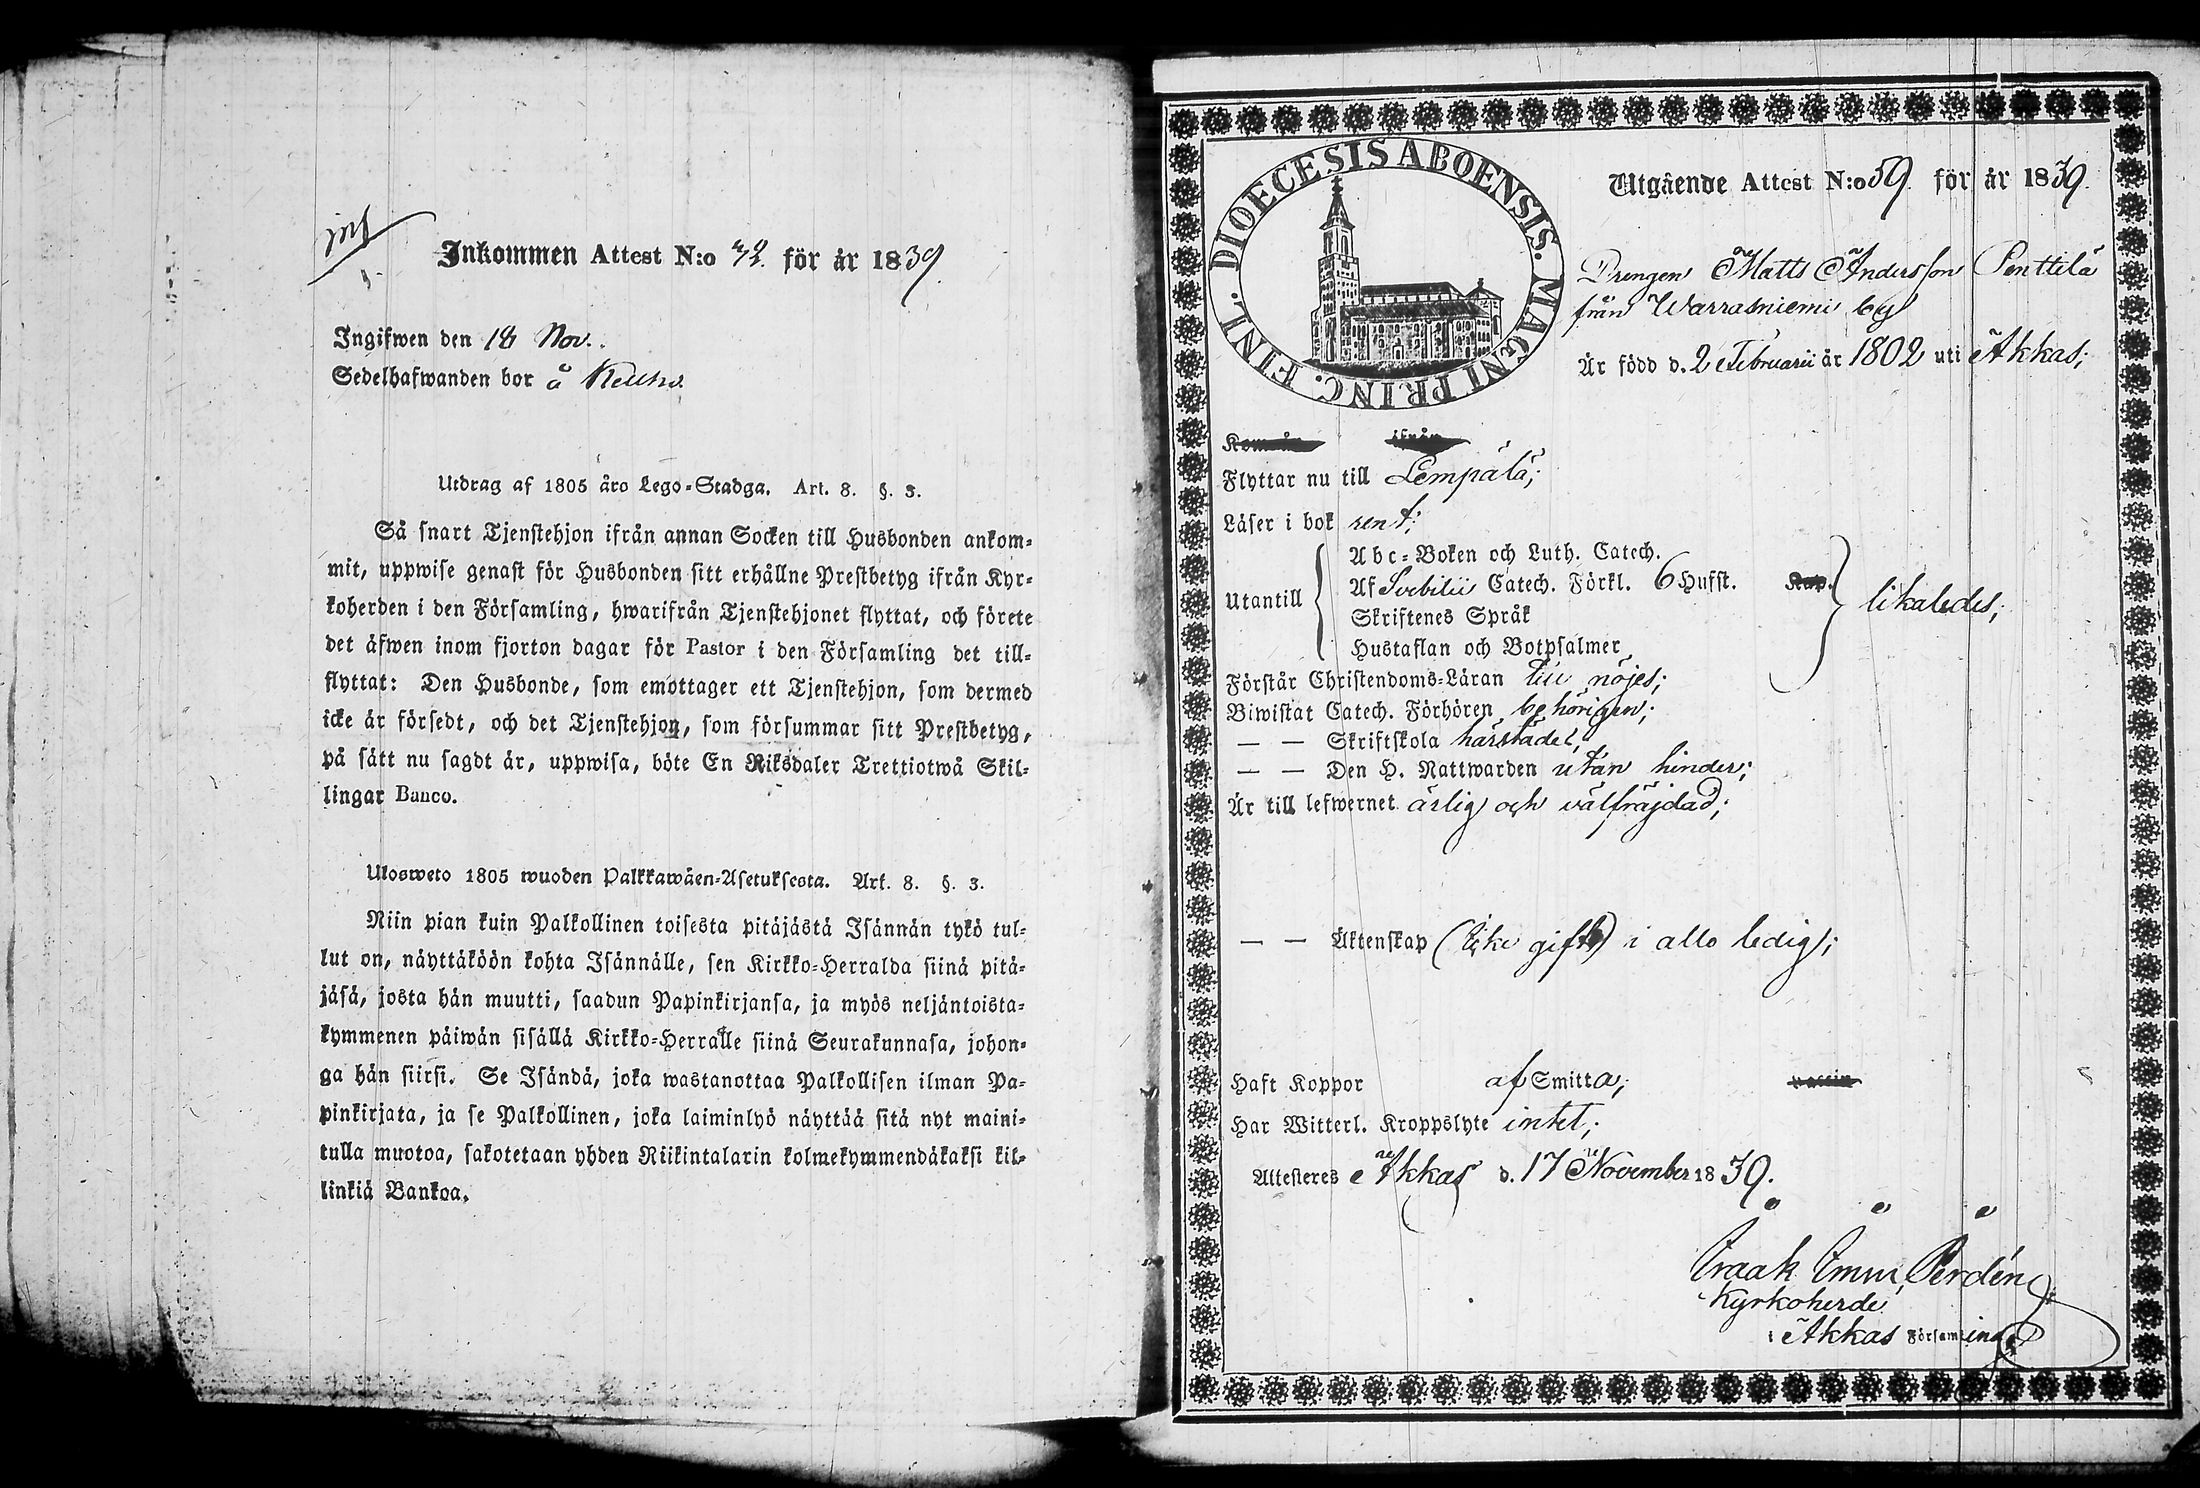 Inkommen Attest N:o 42. för år 1839.
Ingifwen den 18 Nov.
Sedelhafwanden bor å
Utdrag af 1805 åro Lego-Stadga. Art. 8. §. 3.
Så snart Tjenstehjon ifrån annan Socken till Husbonden ankom-
mit, uppwise genast för Husbonden sitt erhållne Prestbetyg ifrån Kyr-
koherden i den Församling, hwarifrån Tjenstehjonet flyttat, och förete
det äfwen inom fjorton dagar för Pastor i den Församling det till-
flyttat: Den Husbonde, som emottager ett Tjenstehjon, som dermed
icke är försedt, och det Tjenstehjon, som försummar sitt Prestbetyg,
på sätt nu sagdt är, uppwisa, böte En Riksdaler Trettiotwå Skil-
lingar Banco.
Ulosweto 1805 wuoden Palkkawäen-Asetuksesta. Art. 8. §. 3.
Niin pian kuin Palkollinen toisesta pitäjästä Isännän tykö tul-
lut on, näyttäköön kohta Isännälle, sen Kirkko-Herralda siinä pitä-
jäsä, josta hän muutti, saadun Papinkirjansa, ja myös neljäntoista-
kymmenen päiwän sisällä Kirkko-Herralle siinä Seurakunnasa, johon-
ga hän siirsi. Se Isändä, joka wastanottaa Palkollisen ilman Pa-
pinkirjata, ja se Palkollinen, joka laiminlyö näyttää sitä nyt maini-
tulla muotoa, sakotetaan yhden Riikintalarin kolmekymmendäkaksi kil-
linkiä Bankoa.
DIOECESIS ABOENSIS. MAGNI PRINC. FINL.
Utgående Attest N:o 59. för år 1839.
Drengen Matts Andersson Penttilä
från Warrasniemi by
Är född d. 2 Februarii år 1802 uti Akkas;
Kommen ifrån
Flyttar nu till Lempälä;
Läser i bok rent;
Utantill
Abc-Boken och Luth. Catech.
Af Svebilii Catech. Förkl. 6 Hufst. Kap.
Skriftenes Språk
Hustaflan och Botpsalmer
likaledes;
Förstår Christendoms-Läran till nöjes;
Biwistat Catech. Förhören behörigen;
— — Skriftskola härstädes;
— — Den H. Nattwarden utan hinder;
Är till lefwernet ärlig och välfräjdad;
— — Äktenskap (Icke gift) i allo ledig;
Haft Koppor af Smitta;
Har Witterl. Kroppslyte intet;
Attesteres Akkas d. 17 November 1839.
Isaak Emm. Perdén
Kyrkoherde
i Akkas Församling